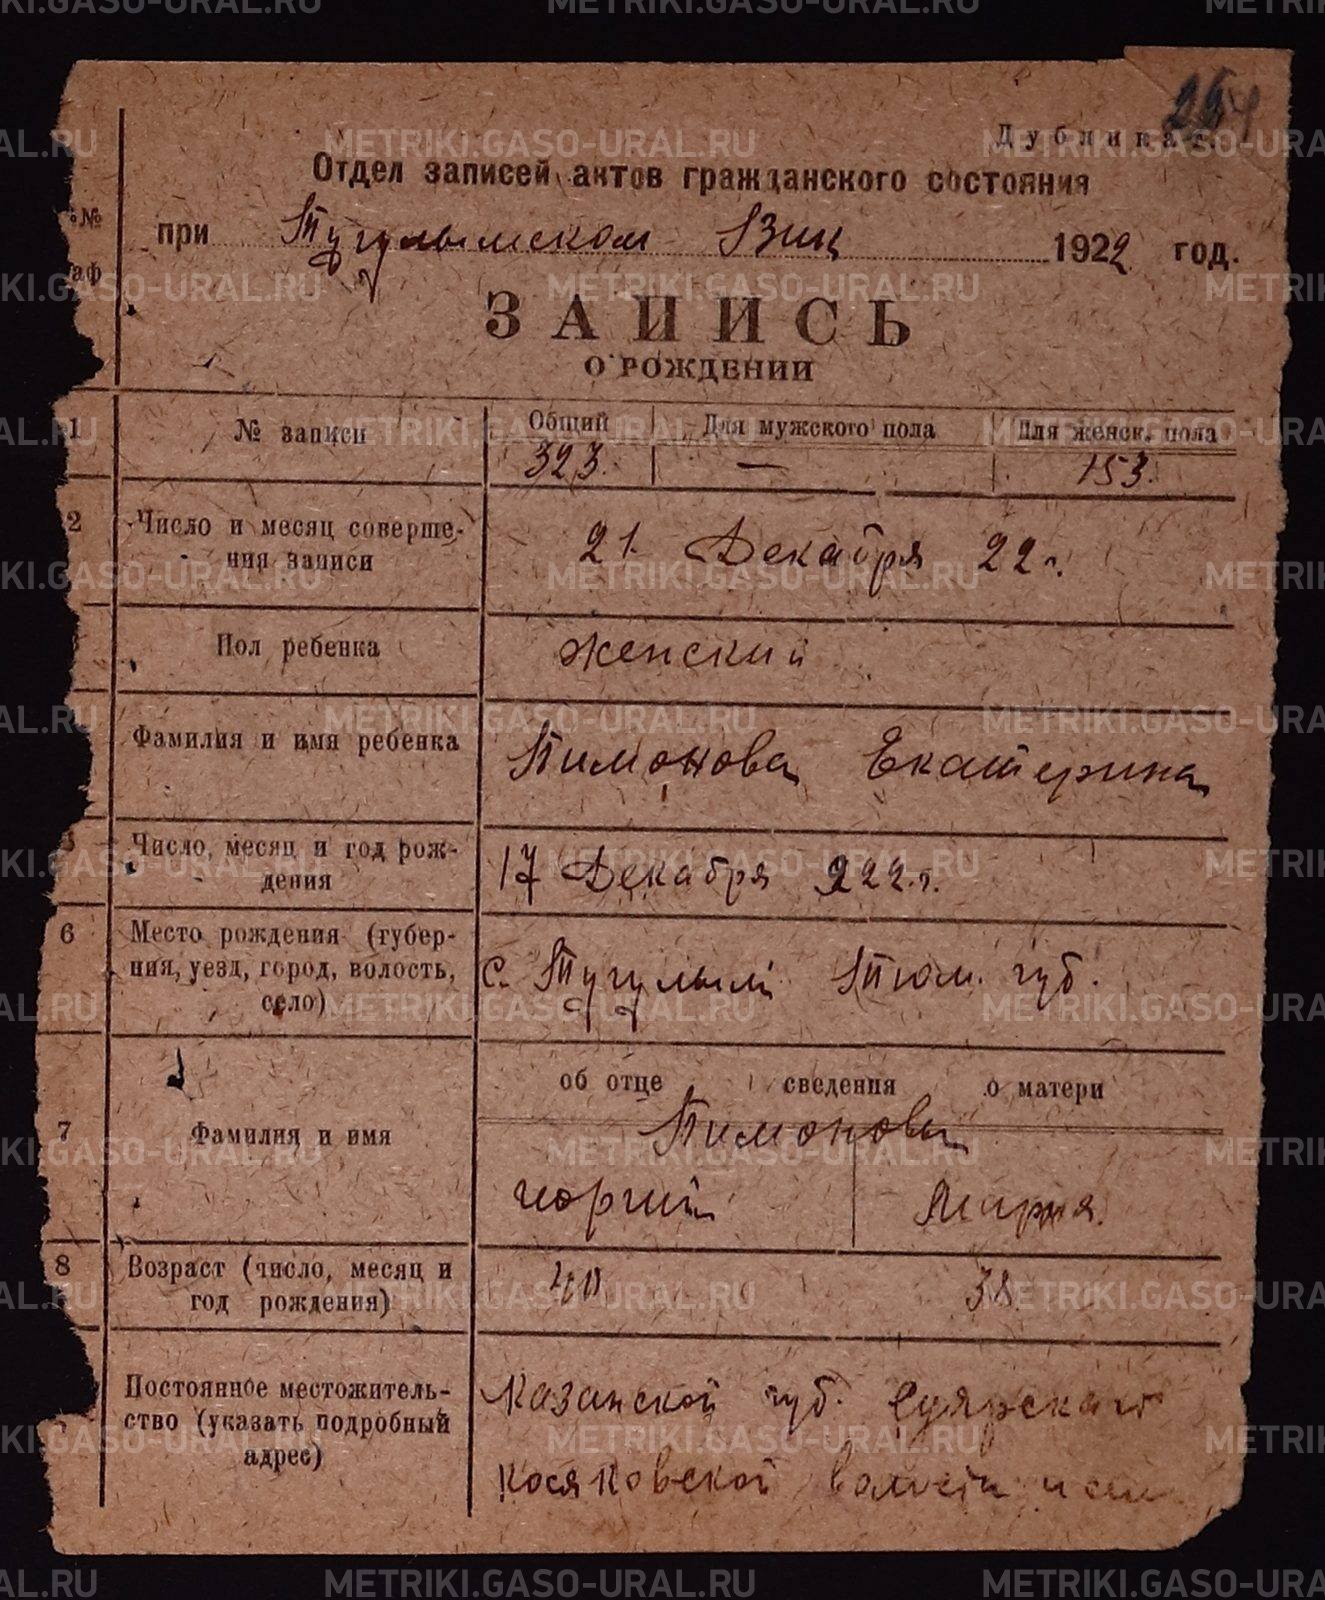 Дубликат.
Отдел записей актов гражданского состояния
№
при Тугулымском ВИК 1922 год.
аф
ЗАПИСЬ
О РОЖДЕНИИ
1 № записи Общий Для мужского пола Для женск. пола
323. — 153.
2 Число и месяц соверше- 21. Декабря 22 г.
ния записи
Пол ребенка женский
Фамилия и имя ребенка Пимонова Екатерина
Число, месяц и год рож- 17 Декабря 922.г.
дения
6 Место рождения (губер-
ния, уезд, город, волость, с. Тугулым Тюм. губ.
село)
об отце сведения о матери
7 Фамилия и имя Пимоновы
Мария.
8 Возраст (число, месяц и 40 38
год рождения)
Постоянное местожитель- Казанской губ.
ство (указать подробный
адрес) Косяковской волости
METRIKI.GASO-URAL.RU